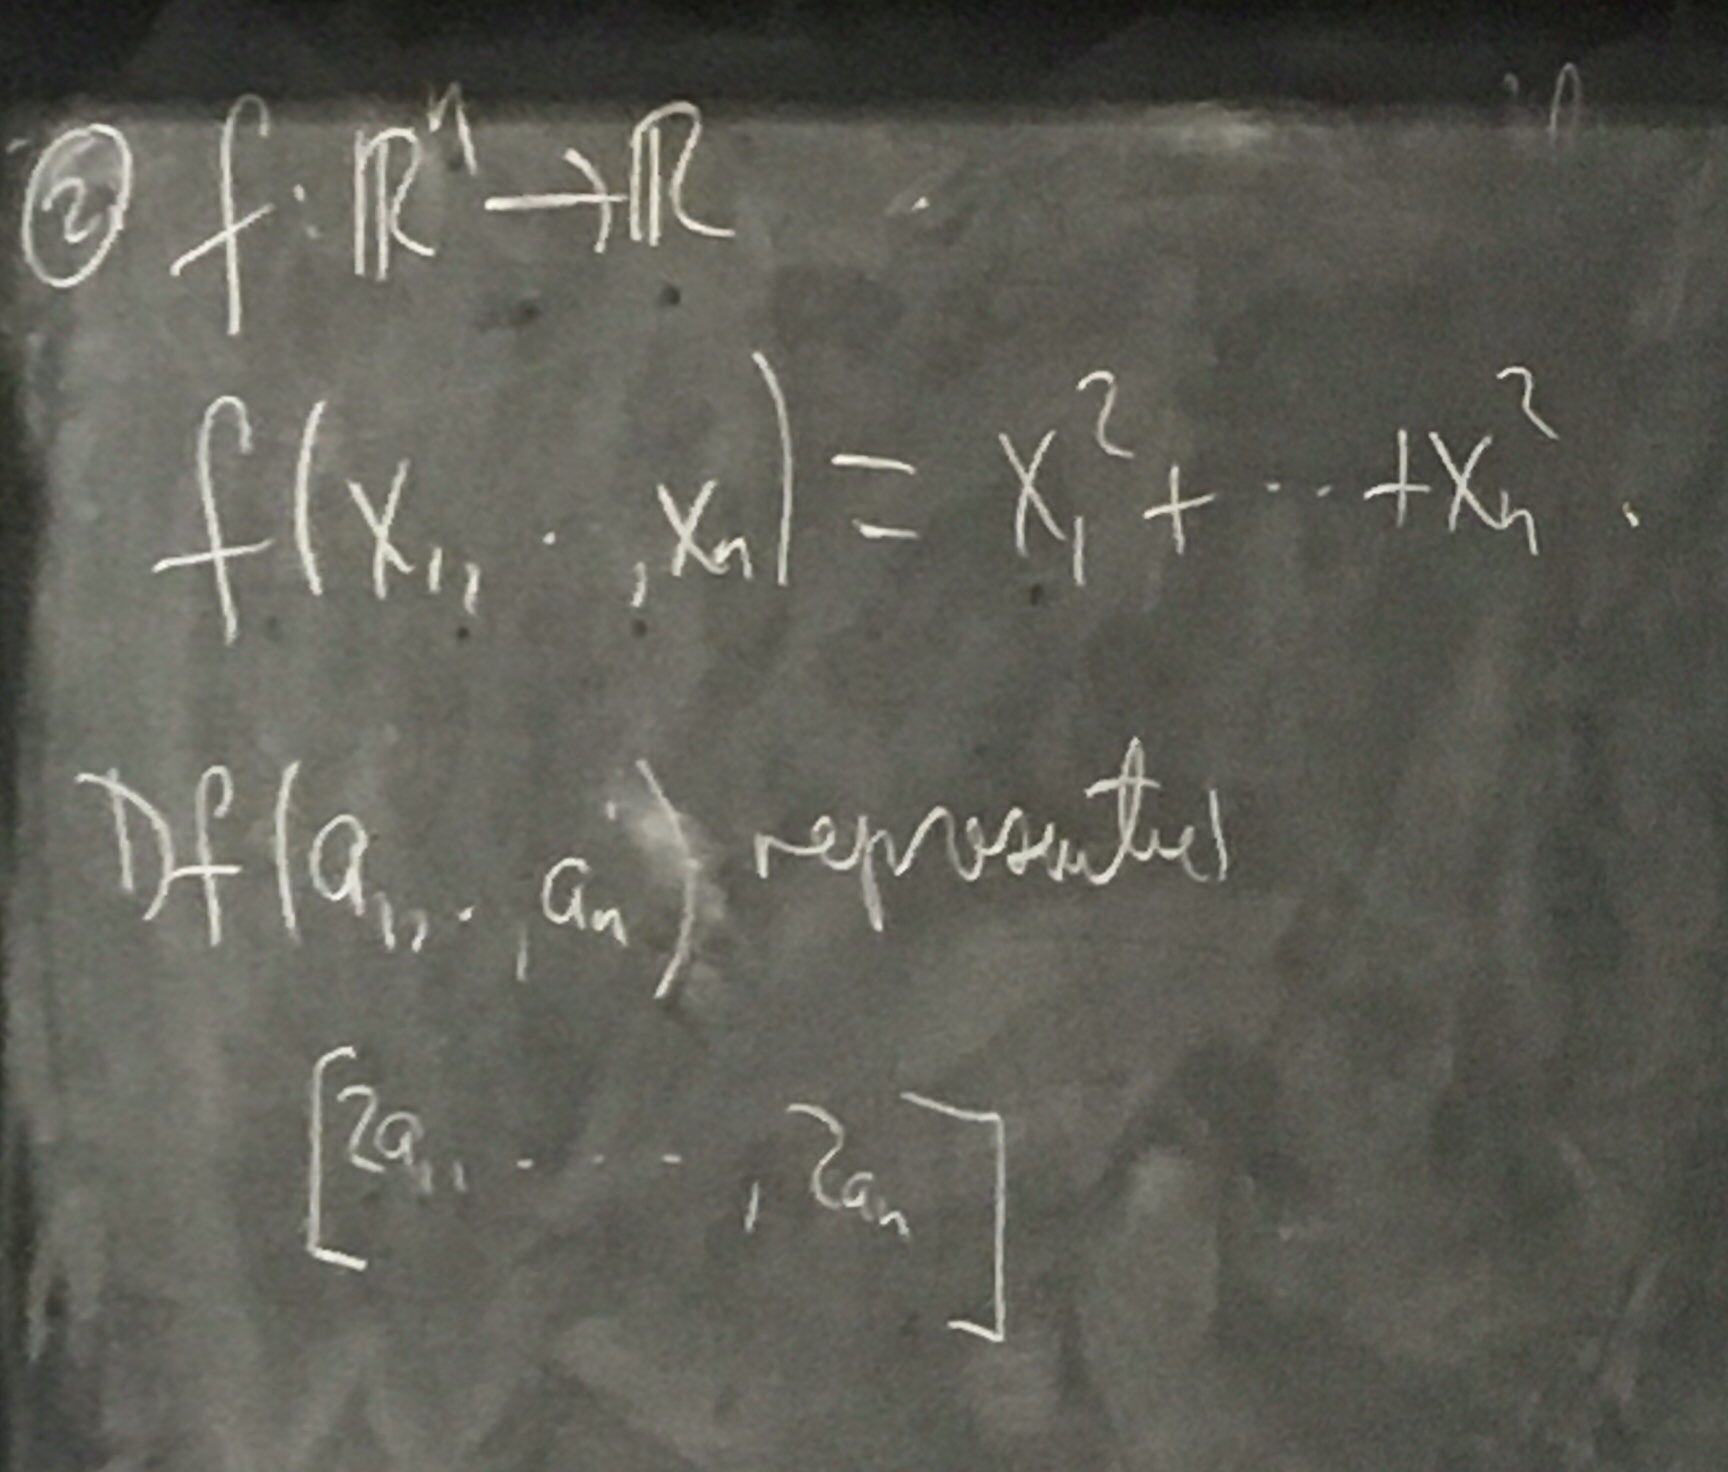 ② f: ℝⁿ → ℝ
f(x₁, ··, xₙ) = x₁² + ··· + xₙ².
Df(a₁, ··, aₙ) represented
[2a₁, ····, 2aₙ]